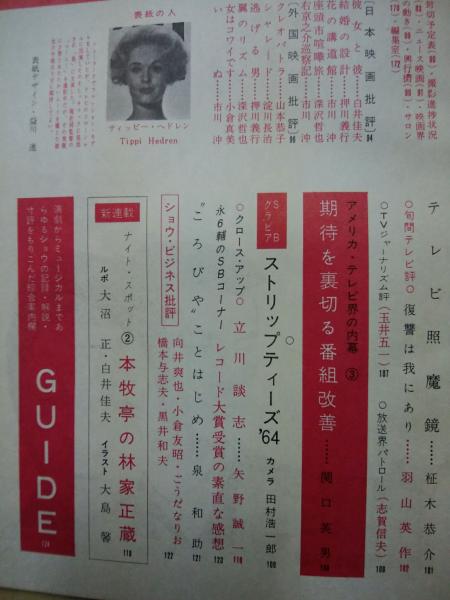 封切予定表(88)・撮影進捗状況
(88)・ニュース映画(90)・映画界
の動き(98)・興行街(88)・サロン
(170)・編集室(172)
〔日本映画批評〕94
彼女と彼……白井佳夫
結婚の設計……押川義行
花の講道館……市川 沖
座頭市喧嘩旅…深沢哲也
右京之介巡察記……市川 沖
〔外国映画批評〕96
クレオパトラ……山本恭子
シャレード……淀川長治
逃げる男……押川義行
翼のリズム……深沢哲也
女はコワイです…小倉真美
ぬ……市川 沖
表紙の人
ティッピー・ヘドレン
Tippi Hedren
表紙デザイン・益川 進
テレビ照魔鏡……柾木恭介 101
○旬間テレビ評○ 復讐は我にあり……羽山英作 102
○TVジャーナリズム評(玉井五一)107 ○放送界パトロール(志賀信夫)108
アメリカ・テレビ界の内幕 ③
期待を裏切る番組改善……関口英男 104
SBグラビア ストリップティーズ'64 カメラ 田村浩一郎 109
○クローズ・アップ○ 立川談志……矢野誠一 118
永6輔のSBコーナー レコード大賞受賞の素直な感想 120
“ころびや”ことはじめ……泉 和助 121
ショウ・ビジネス批評 向井爽也・小倉友昭・ごうだなりお
橋本与志夫・黒井和夫 122
新連載 ナイト・スポット ② 本牧亭の林家正蔵 116
ルポ 大沼 正・白井佳夫 イラスト 大島 馨
演劇からミュージカルまであ
らゆるショウの記録・解説・
寸評をもりこんだ総合案内欄
GUIDE 124